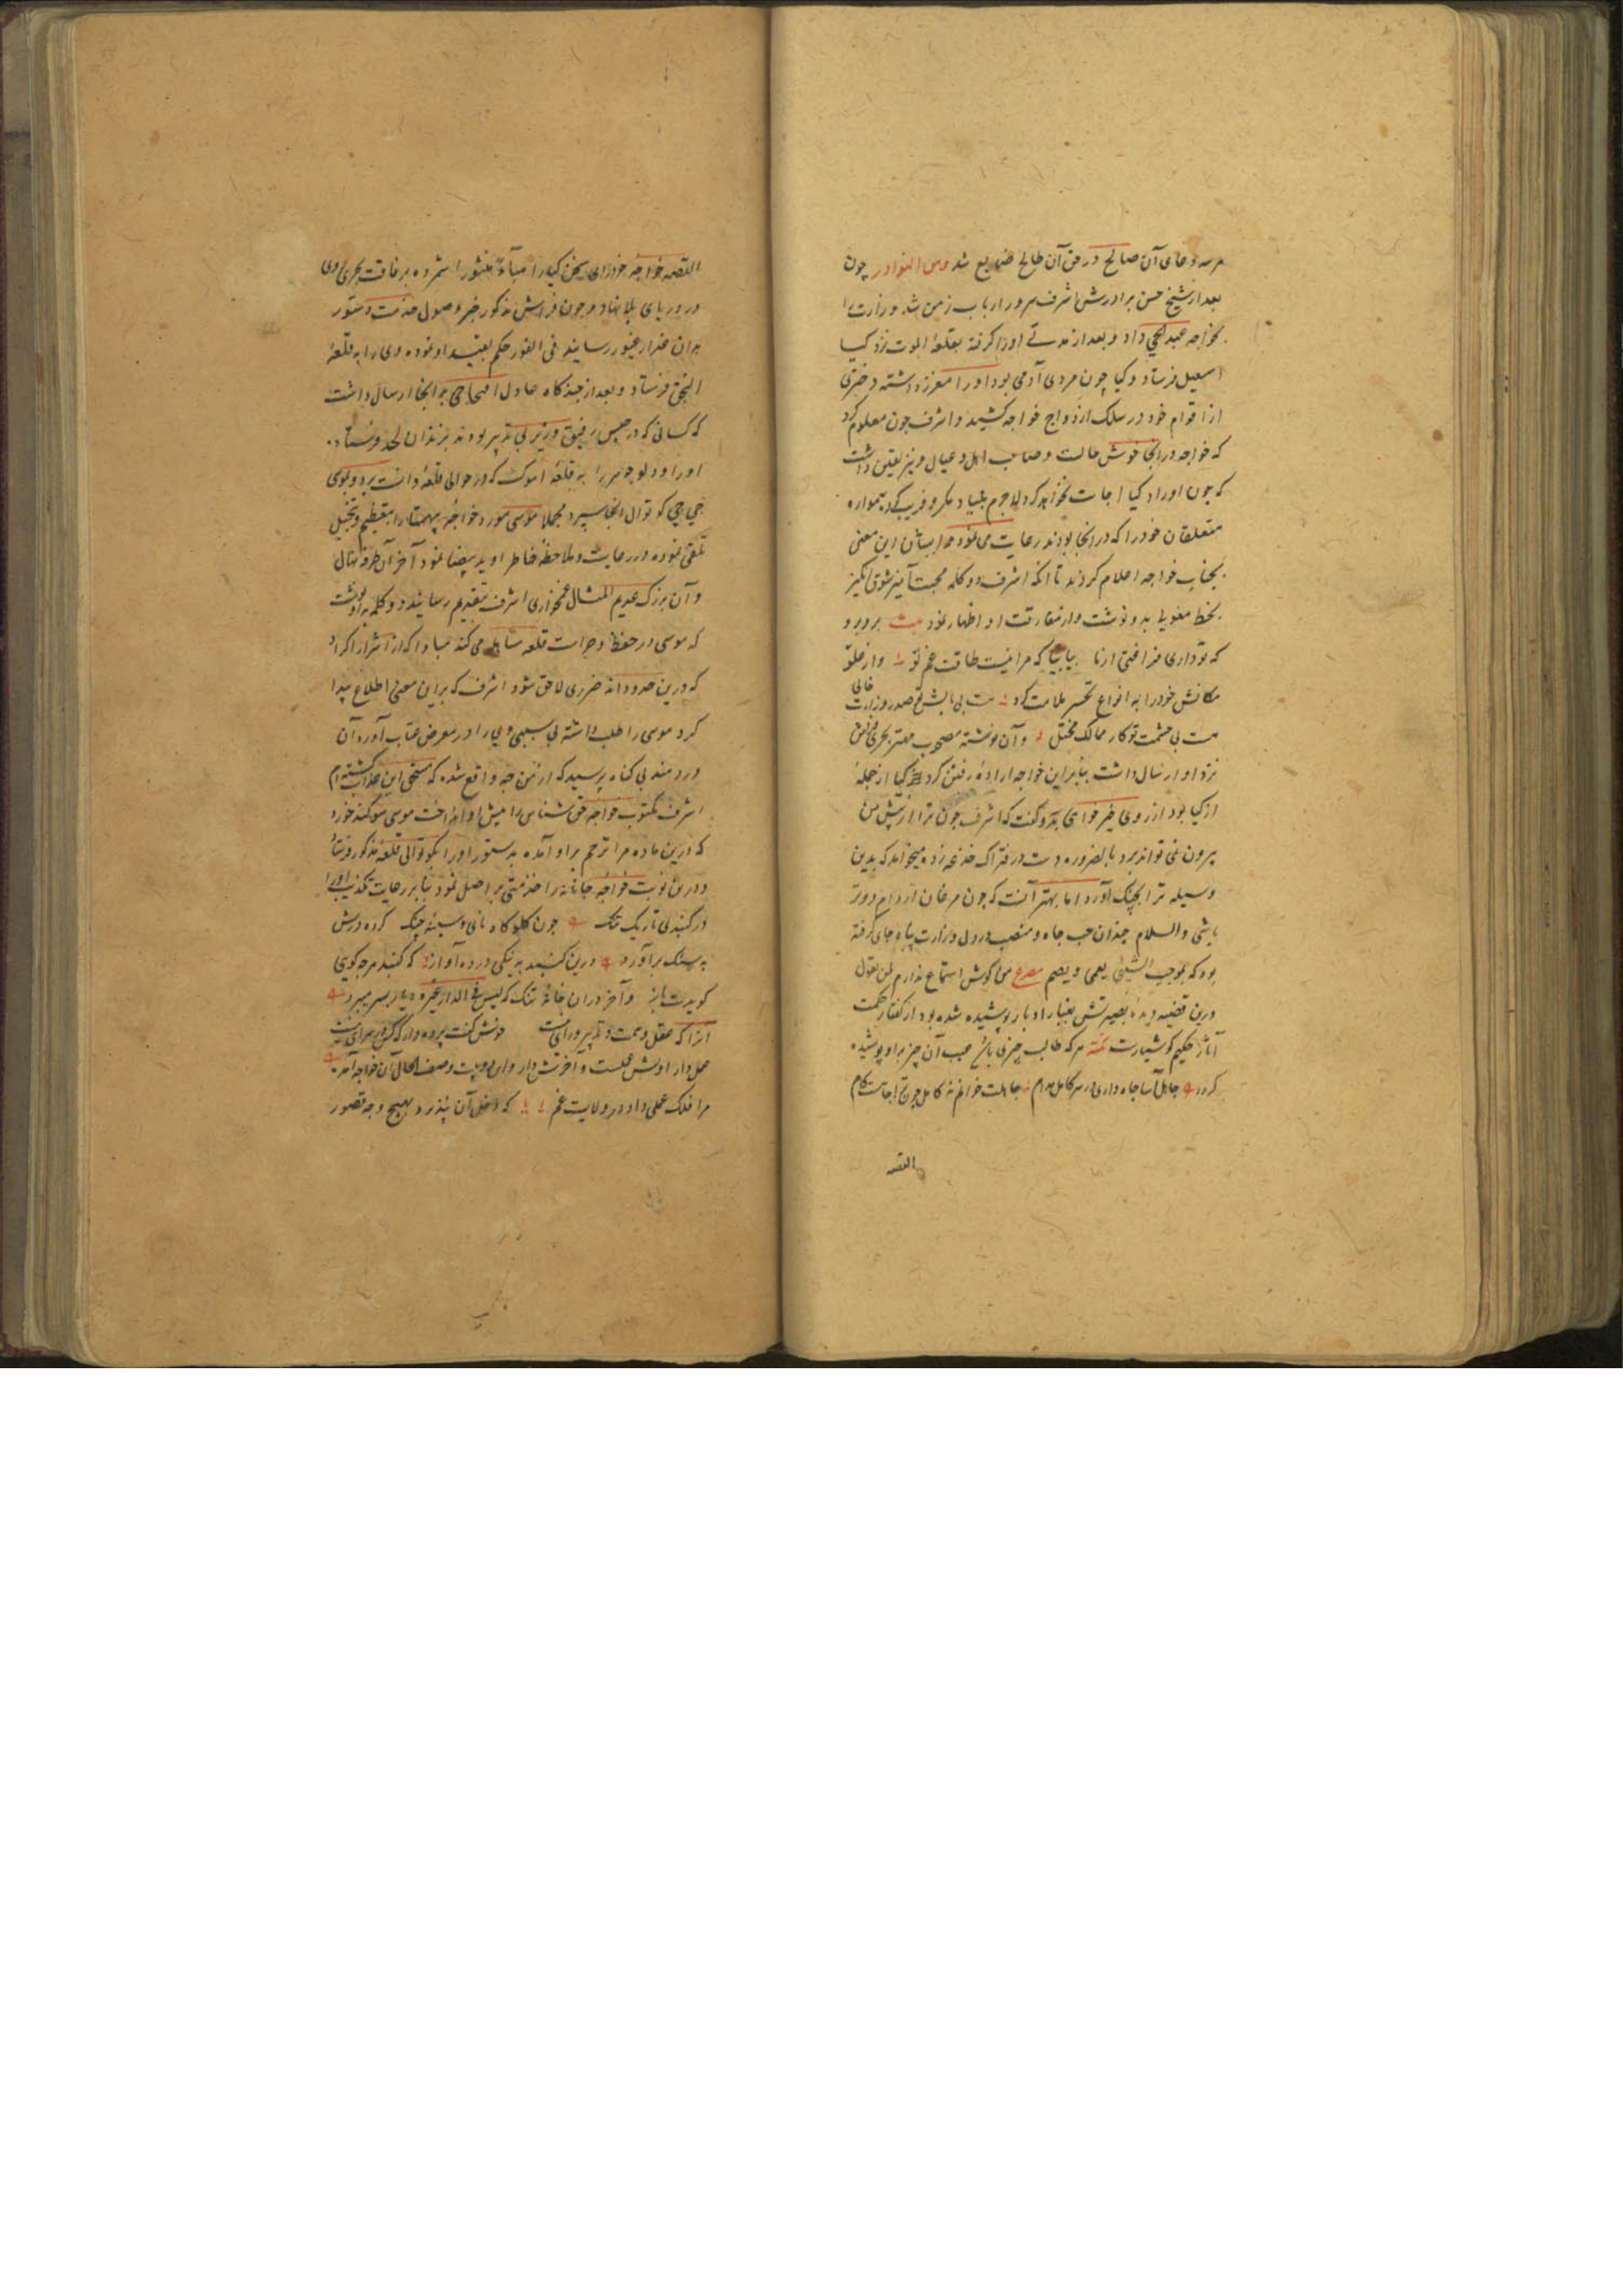 هر سه دعای آن صالح در حق آن طالح ضایع شد ومن النوادر چون
بعد از شیخ حسن برادرش اشرف سرور ارباب زمن شد وزارت را
بخواجه عبدالحی داد و بعد از مدتی او را گرفته بقلعه الموت نزد کیا
اسمعیل فرستاد و کیا چون مردی آدمی بود او را معزز داشته دختری
از اقوام خود در سلک ازدواج خواجه کشید و اشرف چون معلوم کرد
که خواجه در انجا خوش حالت و صاحب اهل و عیال و نیز یقین داشت
که چون او را از کیا اجابت نخواهد کرد لاجرم بنیاد مکر و فریب کرده همواره
متعلقان خود را که در انجا بودند رعایت می نمود و ایشان این معنی
بجناب خواجه اعلام کردند تا آنکه اشرف دو کلمه محبت آمیز شوق انگیز
بخط مغولی بدو نوشت و از مفارقت او اظهار نمود بیت برو برو
که تو داری فراغتی از ما بیا بیا که مرا نیست طاقت غم تو و از خلو
مکانش خود را به انواع تحسر ملامت کرد هست بی بالش تو صدر وزارت خالی
هست بی حشمت تو کار ممالک مختل و آن نوشته مصحوب مهتر بحری فراش
نزد او ارسال داشت بنابراین خواجه اراده رفتن کرد کیا از جمله
ازکیا بود از روی خیر خواهی بدو گفت که اشرف چون ترا از پیش من
بیرون نمی تواند برد بالضروره دست در فتراک خدعه زده میخواهد که بدین
وسیله ترا بچنگ آورد اما بهتر آنست که چون مرغان از دام دورتر
باشی والسلام چندان حب جاه و منصب در دل وزارت پناه جای گرفته
بود که بموجب الشیء یعمی و یصم مصرع من گوش استماع ندارم لمن یقول
درین قضیه دیده بصیرتش بغبار ادبار پوشیده شده بود از گفتار حکمت
آثار حکیم کوشیارست تتمه هر که طالب چیزی باشد عیب آن چیز برو پوشیده
گردد جاهل آسا جاه داری در سر کامل مدام جاهلت خوانم نه کامل چون ترا جاهست کام
القصه
القصه خواجه خود رای سخن کیا را هباءً منثورا شمرده برفاقت بحری روی
در دریای بلا نهاد و چون فراش مذکور خبر وصول خدمت دستور
بران غدار غیور رسانید فی الفور حکم بقید او نموده وی را به قلعه
النجق فرستاد و بعد از چند گاه عادل اختاجی بدانجا ارسال داشت
که کسانی که در حبس رفیق وزیر بی تدبیر بودند بزندان لحد فرستاد
او را و دلو جوهر را به قلعه اموک که در حوالی قلعه وانست برد و بموسی
جی جی کوتوال انجا سپرد مجملا موسی مورد خواجه بیهمتا را بتعظیم و تبجیل
تلقی نموده در رعایت و ملاحظه خاطر او ید بیضا نمود آخر آن طرفه مثال
و آن بزرگ عدیم المثال غمخواری اشرف بتقدیم رسانیده دو کلمه بدو نوشت
که موسی در حفظ و حراست قلعه تساهل می کند مبادا که از اشرار اکراد
که درین حدودند ضرری لاحق شود اشرف که براین معنی اطلاع پیدا
کرد موسی را طلب داشته بی سببی وی را در معرض عتاب آورد آن
دردمند بی گناه پرسید که از من چه واقع شده که مستحق این عذاب گشته ام
اشرف مکتوب خواجه حق شناس را پیش او انداخت موسی سوگند خورد
که درین ماده مرا ترحم بر او آمده بدستور او را بکوتوالی قلعه مذکور فرستاد
و درین نوبت خواجه جانانه را خدمتی بر اصل نمود بنابر رعایت تکذیب او را
در گنبدی تاریک تنگ چون گلوگاه نای و سینه چنگ کرده درش
به سنگ برآورد درین گنبد به نیکی در ده آواز که گنبد هر چه گویی
گویدت باز و آخر در آن خانه تنگ که لیس فی الدار غیره دیار بسر میبرد
آنرا که عقل و همت و تدبیر و رای نیست خوش گفت پرده دار که کس در سرای نیست
مرا فلک عملی داد در ولایت غم که دخل آن بذرد بهیچ وجه قصور